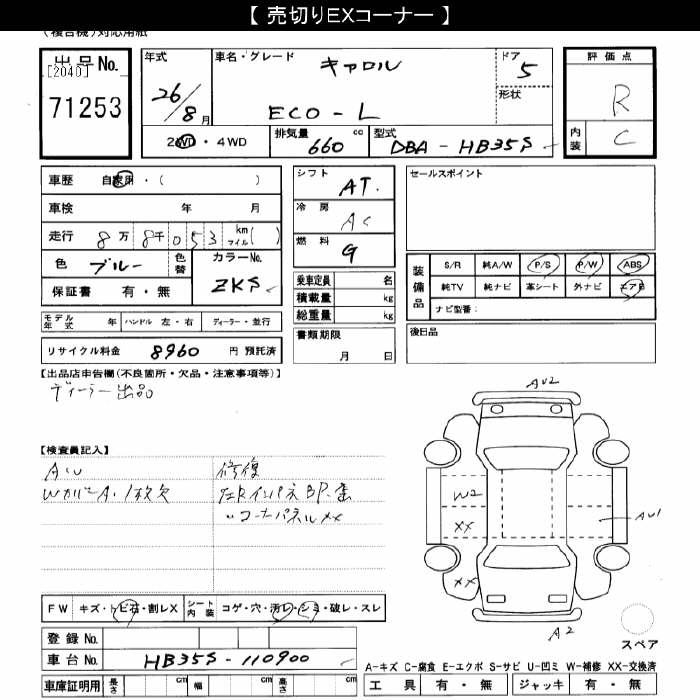 【 売切りEXコーナー 】
(複合機)対応用紙
出品No.
[2040]
71253
年式
26/8月
車名・グレード
キャロル
ECO-L
ドア
5
形状
評価点
R
内装
C
2WD・4WD
排気量 660 cc
型式 DBA-HB35S
車歴 自家用・( )
車検 年 月
走行 8万8千053 km マイル( )
色 ブルー
色替
カラーNo.
ZKS
保証書 有・無
モデル年式 年 ハンドル 左・右 ディーラー・並行
リサイクル料金 8960 円 預託済
シフト
AT.
冷房
AC
燃料
G
乗車定員 名
積載量 kg
総重量 kg
書類期限
月 日
セールスポイント
装備品
S/R 純A/W P/S P/W ABS
純TV 純ナビ 革シート 外ナビ エアB
ナビ型番:
後日品
【出品店申告欄(不良箇所・欠品・注意事項等)】
ディーラー出品
【検査員記入】
AW
WカバーA・1枚欠
修復
左Rインパネ BP・歪
〃コーナーパネルXX
AU2
W2
XX
XX
AU1
A2
スペア
FW キズ・トビ石・割レX
シート内装 コゲ・穴・汚レ・シミ・破レ・スレ
登録No.
車台No. HB35S-110900
車庫証明用 長さ cm 幅 cm 高さ cm
A-キズ C-腐食 E-エクボ S-サビ U-凹ミ W-補修 XX-交換済
工具 有・無 ジャッキ 有・無